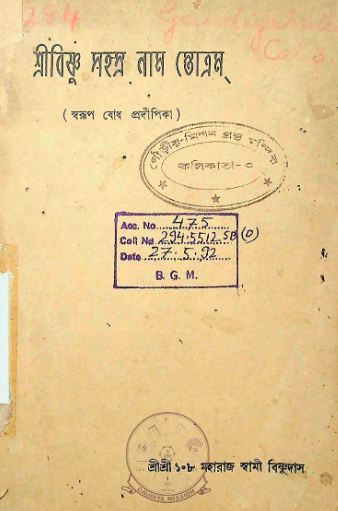 284 Gaudiya
Cal-3
শ্রীবিষ্ণু সহস্র নাম স্তোত্রম্
( স্বরূপ বোধ প্রদীপিকা )
গৌড়ীয়-মিশন গ্রন্থ মন্দির
কলিকাতা-৩
Acc. No. 475
Coll No 294.5512 SB (D)
Date 27.5.92
B. G. M.
শ্রীশ্রী ১০৮ মহারাজ স্বামী বিষ্ণুদাস
GAUDIYA MISSION